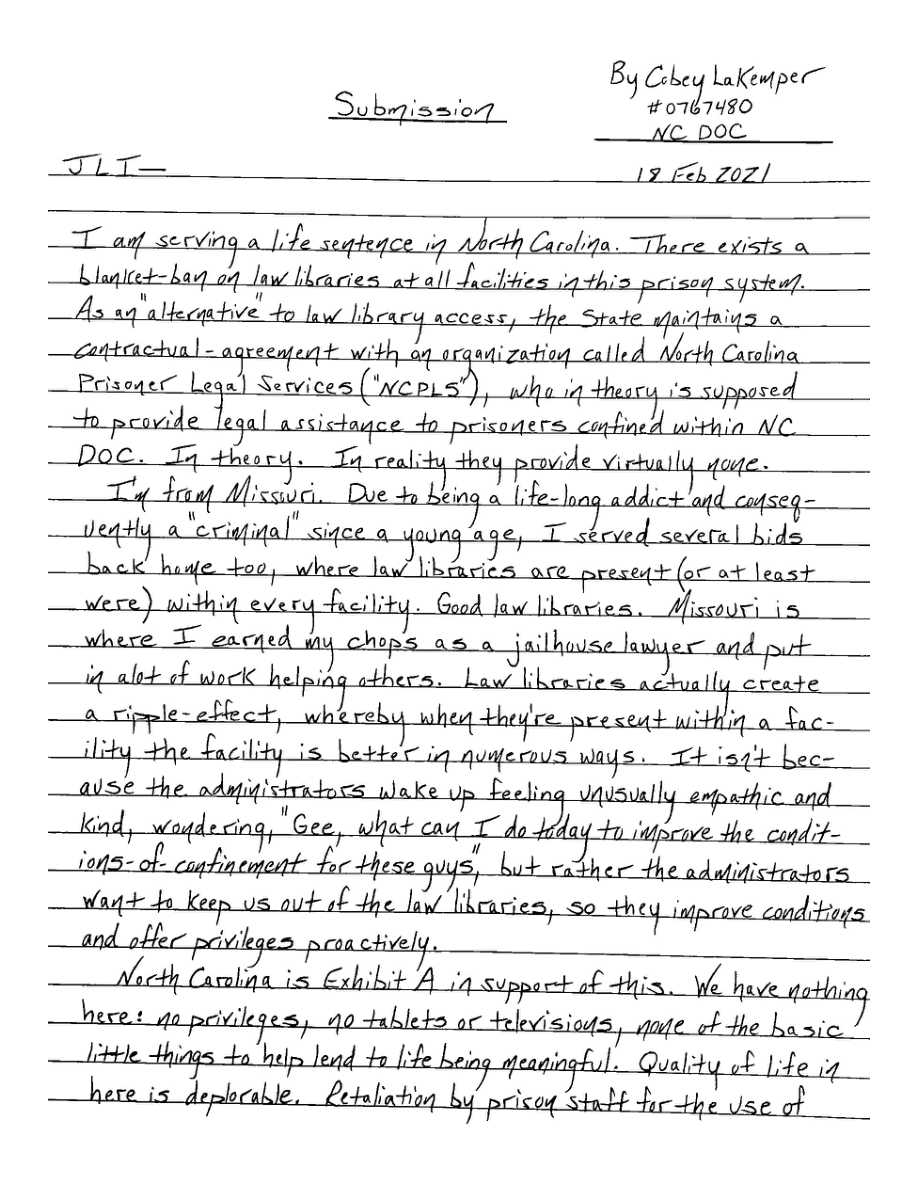 By Cobey LaKemper
Submission
#0767480
NC DOC
JLI—
18 Feb 2021
I am serving a life sentence in North Carolina. There exists a
blanket-ban on law libraries at all facilities in this prison system.
As an "alternative" to law library access, the State maintains a
contractual-agreement with an organization called North Carolina
Prisoner Legal Services ("NCPLS"), who in theory is supposed
to provide legal assistance to prisoners confined within NC
DOC. In theory. In reality they provide virtually none.
I'm from Missouri. Due to being a life-long addict and conseq-
uently a "criminal" since a young age, I served several bids
back home too, where law libraries are present (or at least
were) within every facility. Good law libraries. Missouri is
where I earned my chops as a jailhouse lawyer and put
in alot of work helping others. Law libraries actually create
a ripple-effect, whereby when they're present within a fac-
ility the facility is better in numerous ways. It isn't bec-
ause the administrators wake up feeling unusually empathic and
kind, wondering, "Gee, what can I do today to improve the condit-
ions-of-confinement for these guys", but rather the administrators
want to keep us out of the law libraries, so they improve conditions
and offer privileges proactively.
North Carolina is Exhibit A in support of this. We have nothing
here: no privileges, no tablets or televisions, none of the basic
little things to help lend to life being meaningful. Quality of life in
here is deplorable. Retaliation by prison staff for the use of